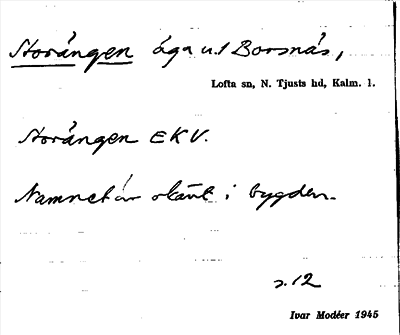 Storängen äga u.l Borsnäs,
Lofta sn, N. Tjusts hd, Kalm. l.
Storängen EKV.
Namnet är okänt i bygden.
s. 12
Ivar Modéer 1945